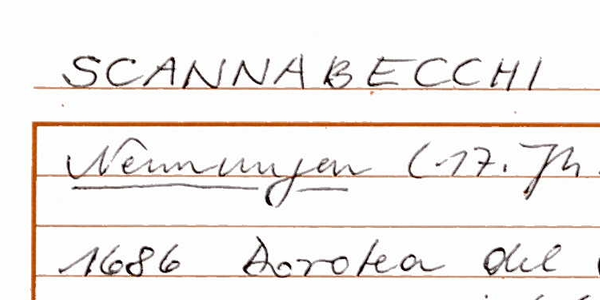 SCANNABECCHI
Nennungen (-17. Jh.
1686 Dorotea del